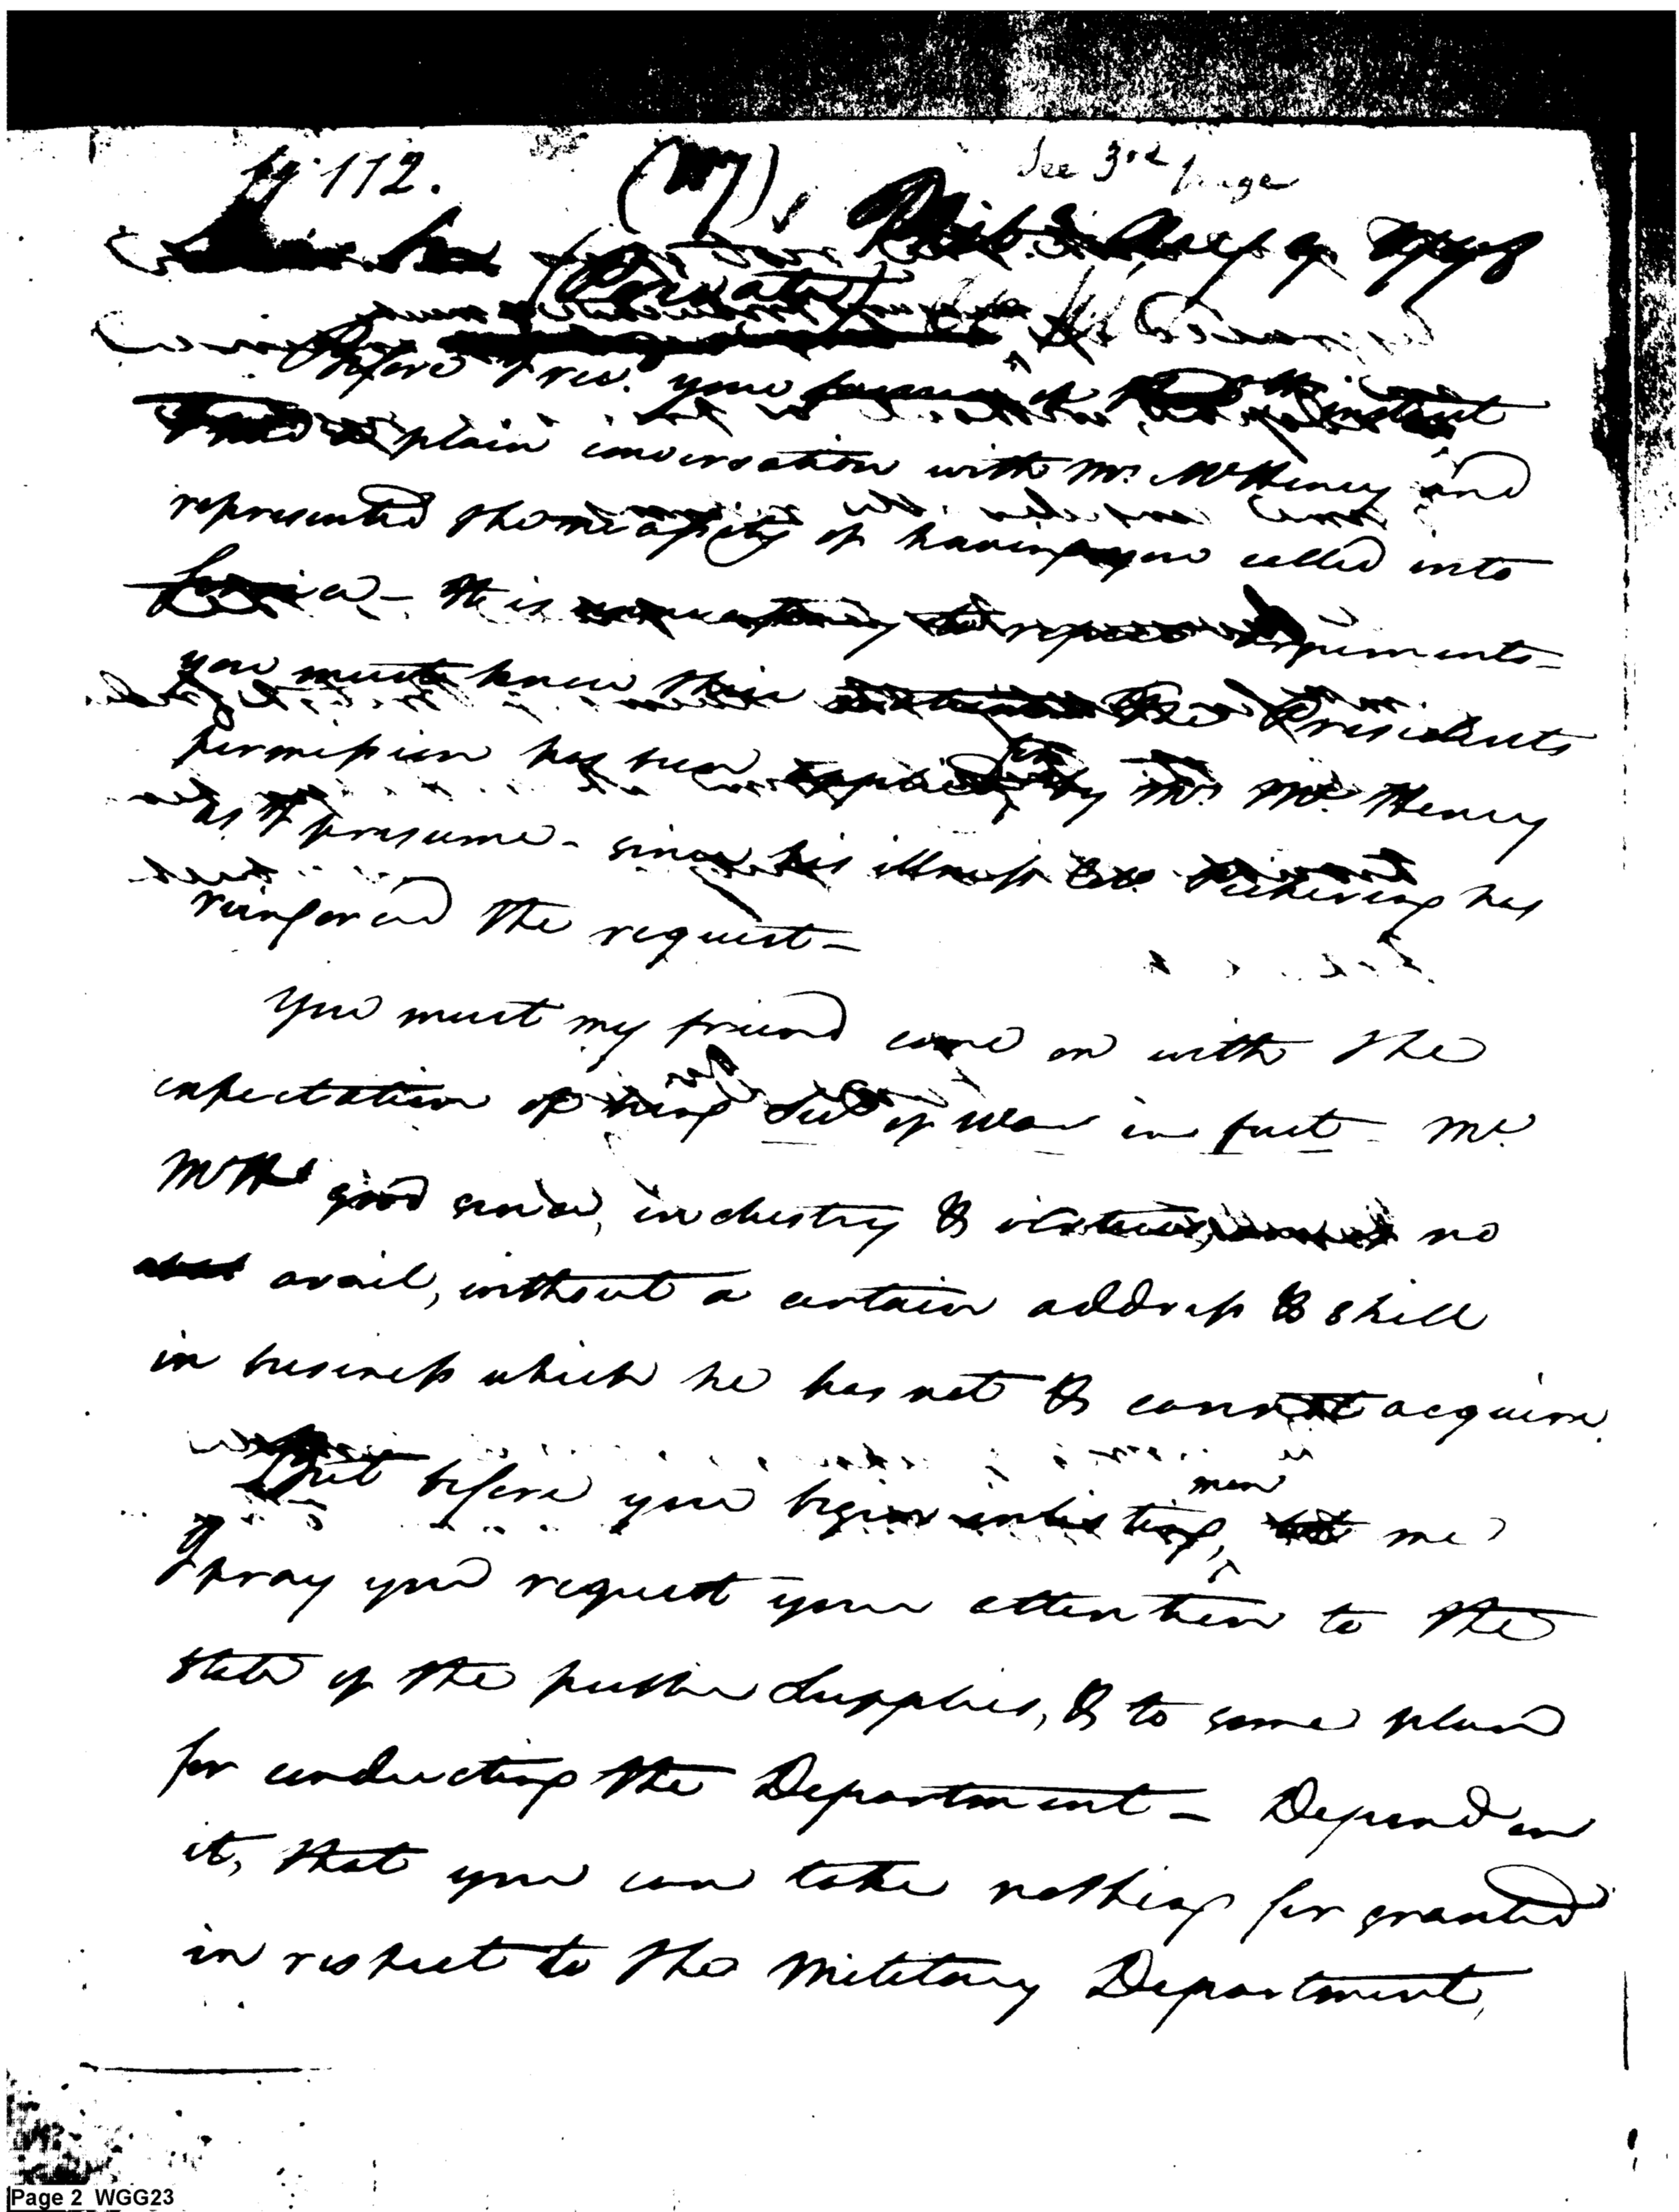 112.
See 3rd page
(Private)
Before I recd. your of the instant
plain conversation with Mr. McHenry and
represented the necessity of having you called into
It is to repeat arguments—
you must know them The Presidents
permission has been applied for by Mr. McHenry
as I presume— since his illness Col Pickering has
reinforced the request—
You must my friend come on with the
expectation of being Secy of War in fact— Mr.
McH's good sense, industry & virtues, no
avail, without a certain address & skill
in business which he has not & cannot acquire.
But before you begin inlisting men, let me
I pray you request your attention to the
state of the public supplies, & to some plan
for conducting the Department— Depend on
it, that you can take nothing for granted
in respect to the Military Department,
Page 2 WGG23